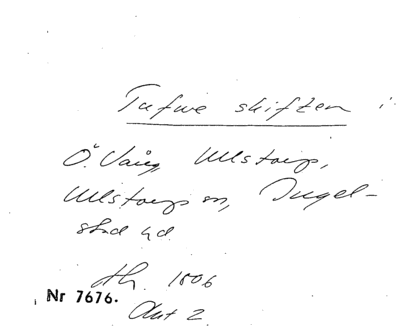 Tufwe skiften i
Ö. Vång, Ullstorp,
Ullstorps sn, Ingel-
stad hd.
1806
Nr 7676.
Akt 2